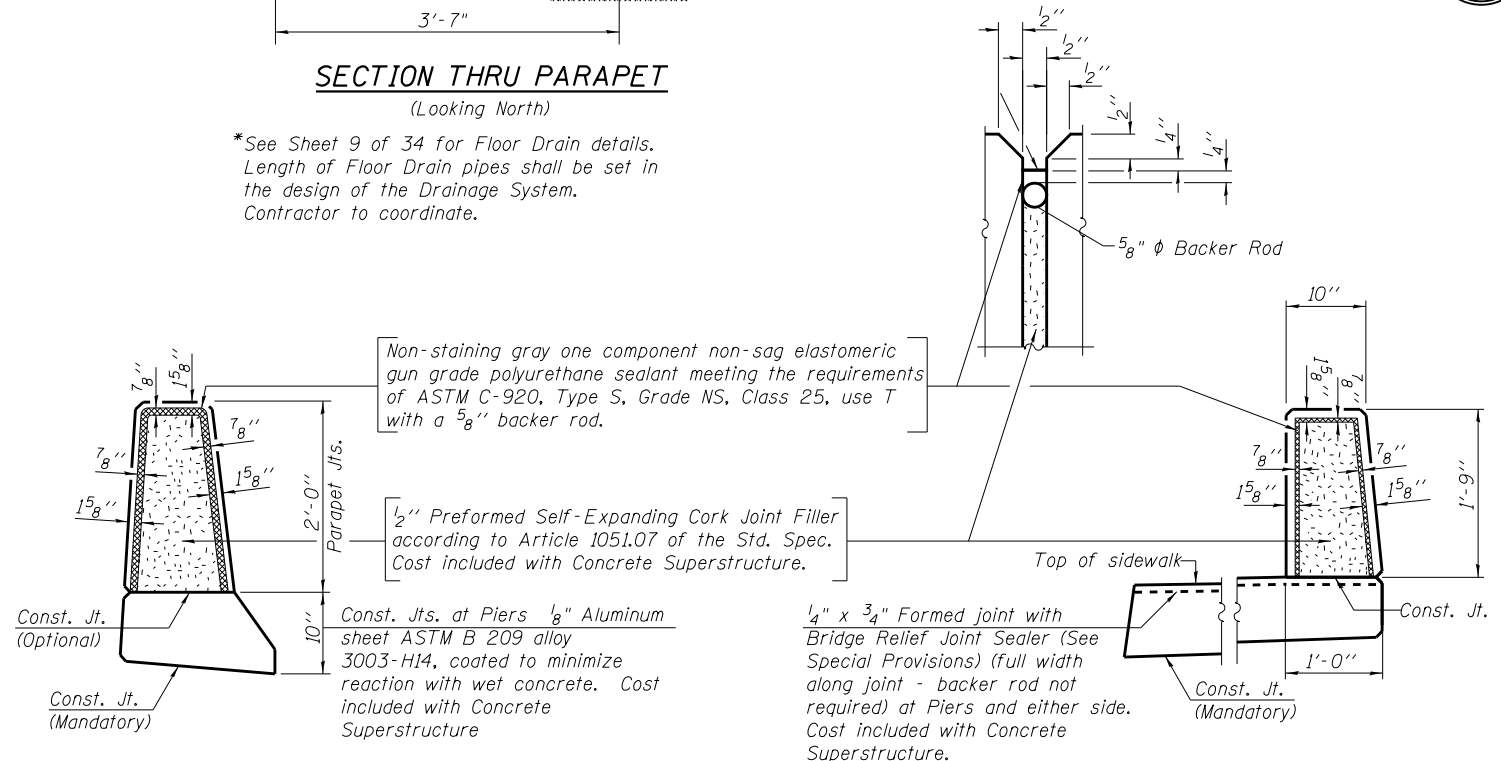 3'-7"
SECTION THRU PARAPET
(Looking North)
*See Sheet 9 of 34 for Floor Drain details.
Length of Floor Drain pipes shall be set in
the design of the Drainage System.
Contractor to coordinate.
1/2''
1/2''
1/2''
1/2''
1/4''
1/4''
5/8" ϕ Backer Rod
Non-staining gray one component non-sag elastomeric
gun grade polyurethane sealant meeting the requirements
of ASTM C-920, Type S, Grade NS, Class 25, use T
with a 5/8'' backer rod.
1/2'' Preformed Self-Expanding Cork Joint Filler
according to Article 1051.07 of the Std. Spec.
Cost included with Concrete Superstructure.
7/8''
1 5/8''
7/8''
7/8''
1 5/8''
1 5/8''
2'-0''
Parapet Jts.
10''
Const. Jt.
(Optional)
Const. Jt.
(Mandatory)
Const. Jts. at Piers 1/8" Aluminum
sheet ASTM B 209 alloy
3003-H14, coated to minimize
reaction with wet concrete. Cost
included with Concrete
Superstructure
10''
1 5/8''
7/8''
7/8''
7/8''
1 5/8''
1 5/8''
1'-9''
Top of sidewalk
Const. Jt.
1'-0''
Const. Jt.
(Mandatory)
1/4'' x 3/4'' Formed joint with
Bridge Relief Joint Sealer (See
Special Provisions) (full width
along joint - backer rod not
required) at Piers and either side.
Cost included with Concrete
Superstructure.